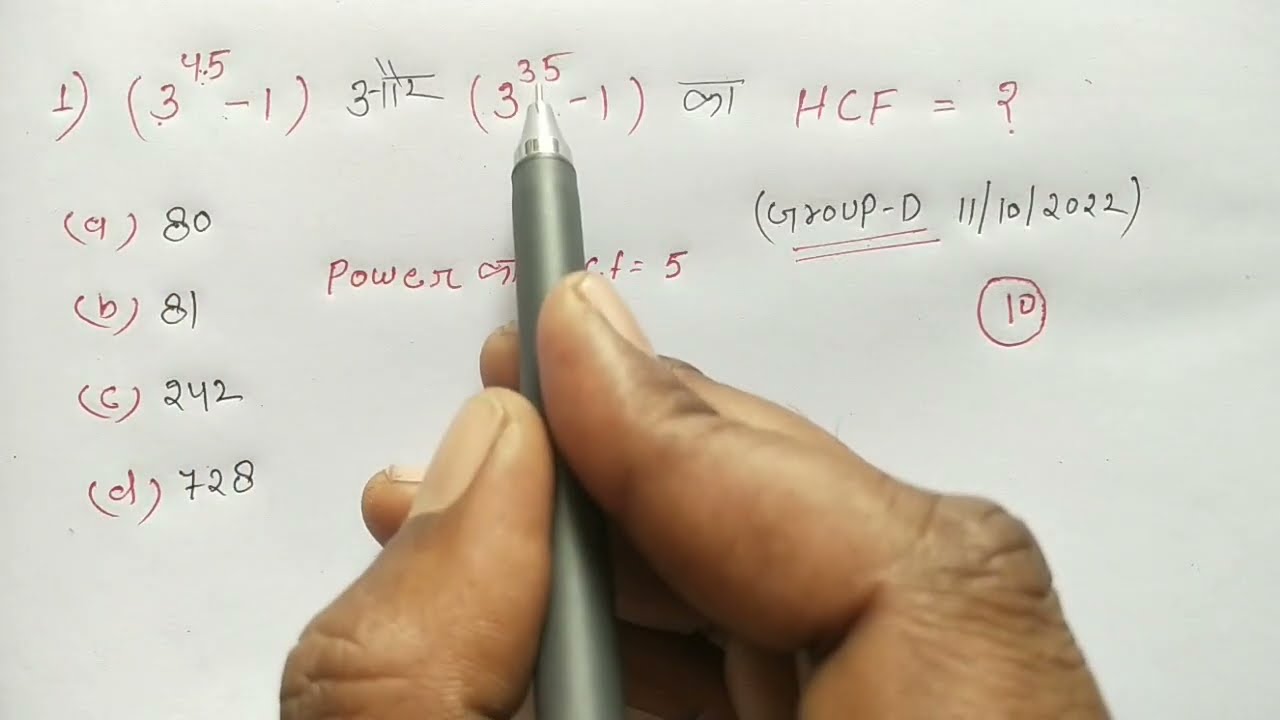 1) (3^45 - 1) और (3^35 - 1) का HCF = ?
(GROUP-D 11/10/2022)
(a) 80
Power का .f = 5
(b) 81
10
(c) 242
(d) 728